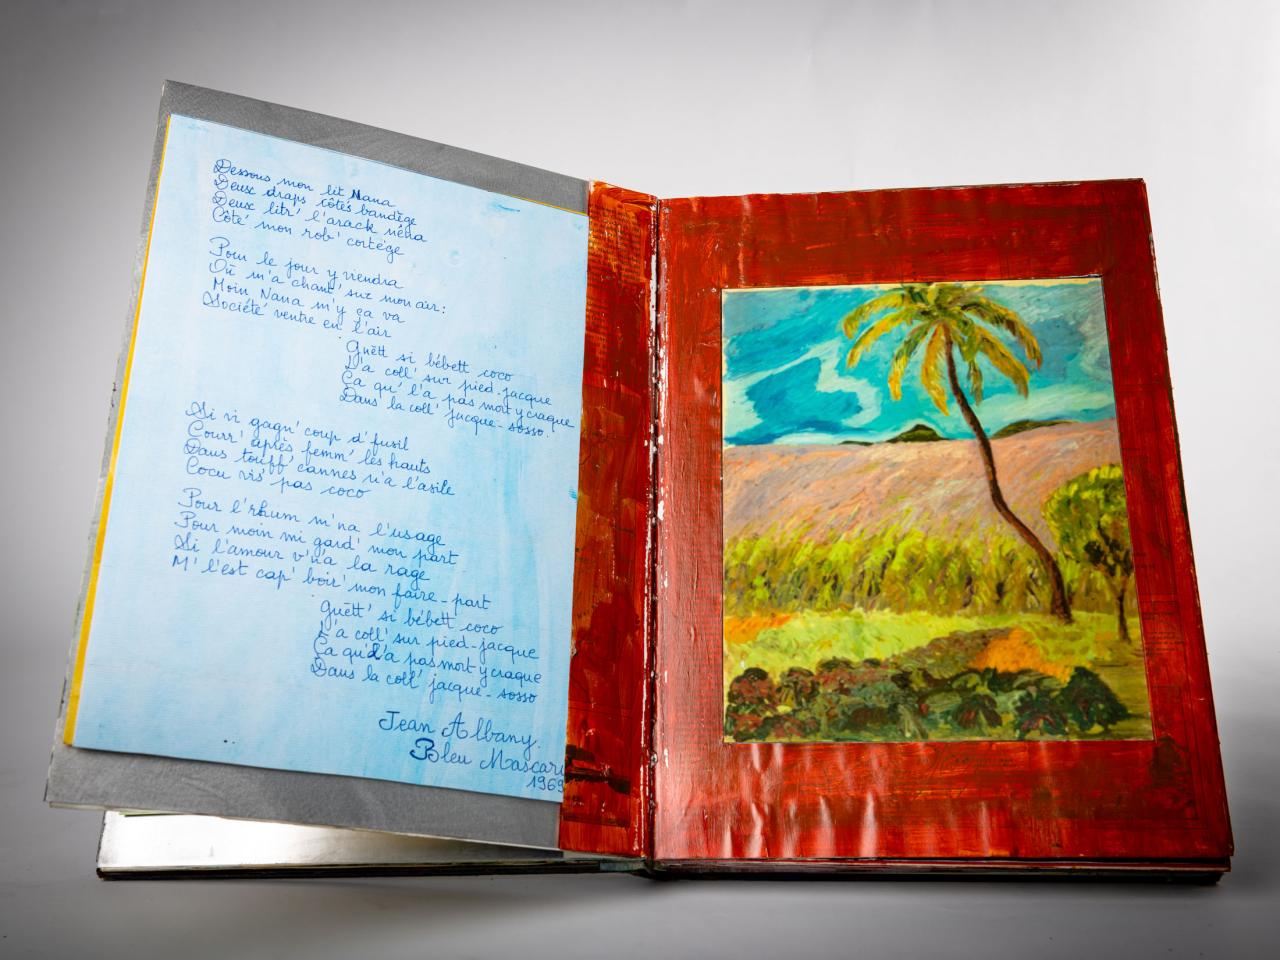 Dessous mon lit Nana
Deux draps côtés bandège
Deux litr' l'arack néna
Côté mon rob' cortège
Pour le jour y viendra
Où m'a chant' sur mon air:
Moin Nana m'y ça va
Société ventre en l'air
Guètt si bébett coco
L'a coll' sur pied-jacque
Ça qu' l'a pas mort y craque
Dans la coll' jacque-sosso.
Si vi gagn' coup d'fusil
Courr' après femm' les hauts
Dans touff' cannes n'a l'asile
Cocu vis' pas coco
Pour l'rhum m'na l'usage
Pour moin mi gard' mon part
Si l'amour v'na la rage
M' l'est cap' boir' mon faire-part
Guètt' si bébett coco
L'a coll' sur pied-jacque
Ça qu' l'a pas mort y craque
Dans la coll' jacque-sosso
Jean Albany.
Bleu Mascar
1969